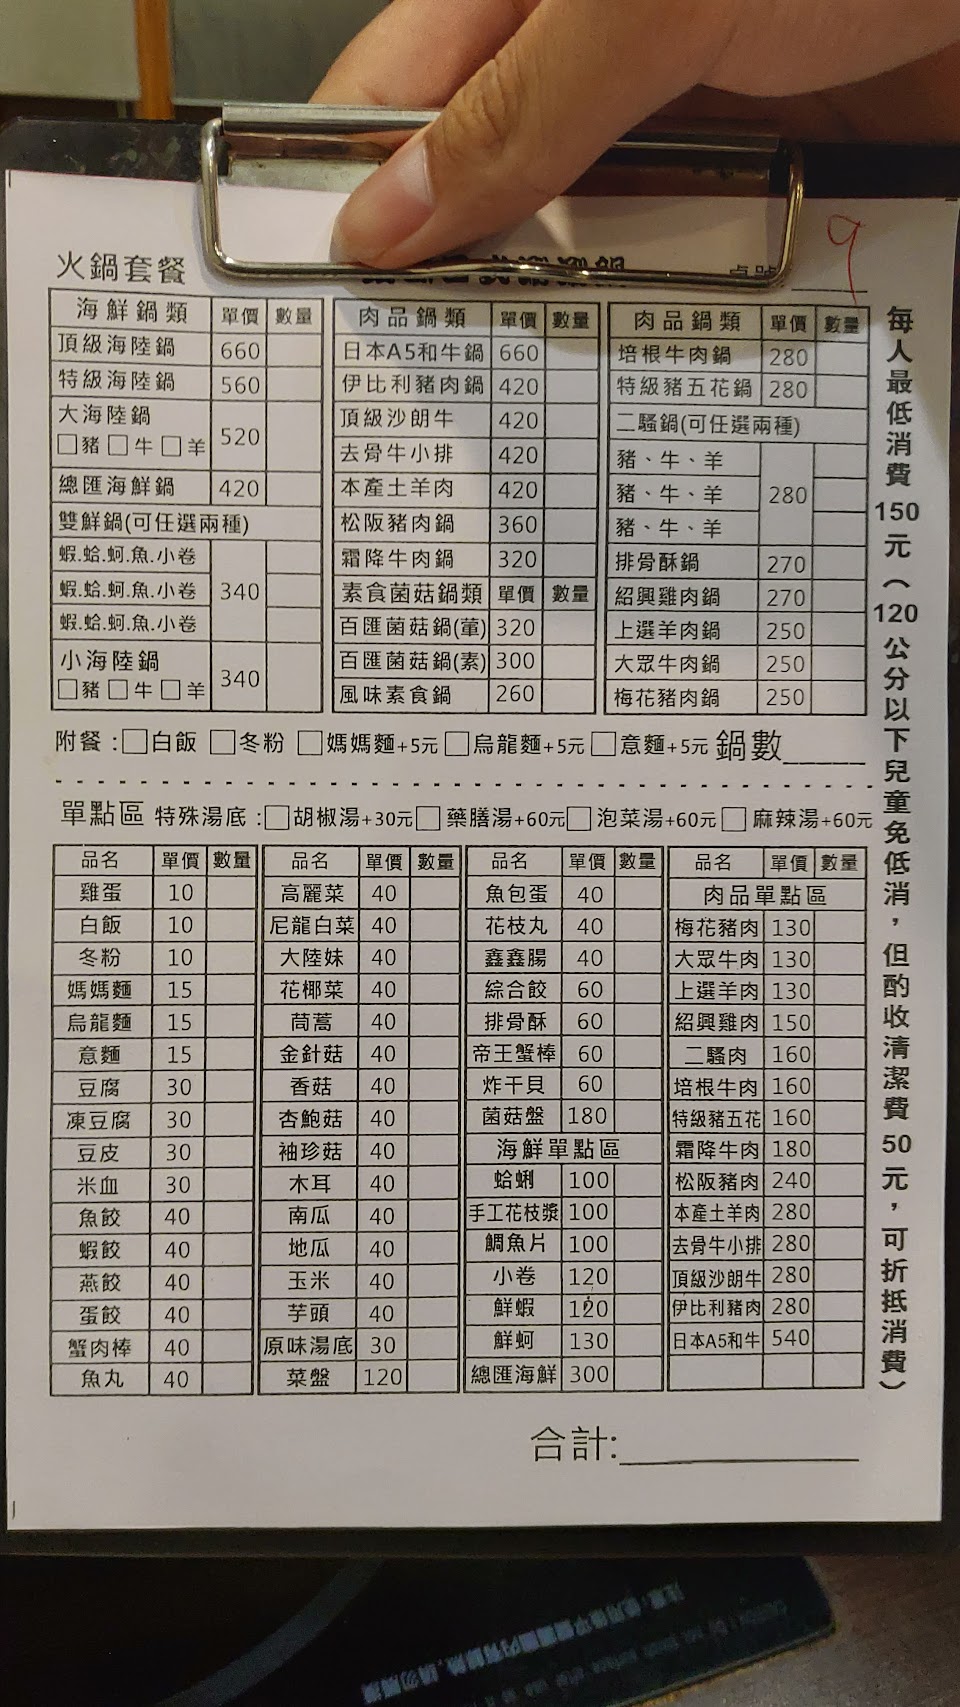 9
火鍋套餐
海鮮鍋類 單價 數量
頂級海陸鍋 660
特級海陸鍋 560
大海陸鍋 520
□豬□牛□羊
總匯海鮮鍋 420
雙鮮鍋(可任選兩種)
蝦.蛤.蚵.魚.小卷
蝦.蛤.蚵.魚.小卷 340
蝦.蛤.蚵.魚.小卷
小海陸鍋 340
□豬□牛□羊
肉品鍋類 單價 數量
日本A5和牛鍋 660
伊比利豬肉鍋 420
頂級沙朗牛 420
去骨牛小排 420
本產土羊肉 420
松阪豬肉鍋 360
霜降牛肉鍋 320
素食菌菇鍋類 單價 數量
百匯菌菇鍋(葷) 320
百匯菌菇鍋(素) 300
風味素食鍋 260
肉品鍋類 單價 數量
培根牛肉鍋 280
特級豬五花鍋 280
二騷鍋(可任選兩種)
豬、牛、羊
豬、牛、羊 280
豬、牛、羊
排骨酥鍋 270
紹興雞肉鍋 270
上選羊肉鍋 250
大眾牛肉鍋 250
梅花豬肉鍋 250
附餐:□白飯 □冬粉 □媽媽麵+5元 □烏龍麵+5元 □意麵+5元 鍋數______
單點區 特殊湯底:□胡椒湯+30元□藥膳湯+60元□泡菜湯+60元□麻辣湯+60元
品名 單價 數量
雞蛋 10
白飯 10
冬粉 10
媽媽麵 15
烏龍麵 15
意麵 15
豆腐 30
凍豆腐 30
豆皮 30
米血 30
魚餃 40
蝦餃 40
燕餃 40
蛋餃 40
蟹肉棒 40
魚丸 40
品名 單價 數量
高麗菜 40
尼龍白菜 40
大陸妹 40
花椰菜 40
茼蒿 40
金針菇 40
香菇 40
杏鮑菇 40
袖珍菇 40
木耳 40
南瓜 40
地瓜 40
玉米 40
芋頭 40
原味湯底 30
菜盤 120
品名 單價 數量
魚包蛋 40
花枝丸 40
鑫鑫腸 40
綜合餃 60
排骨酥 60
帝王蟹棒 60
炸干貝 60
菌菇盤 180
海鮮單點區
蛤蜊 100
手工花枝漿 100
鯛魚片 100
小卷 120
鮮蝦 120
鮮蚵 130
總匯海鮮 300
品名 單價 數量
肉品單點區
梅花豬肉 130
大眾牛肉 130
上選羊肉 130
紹興雞肉 150
二騷肉 160
培根牛肉 160
特級豬五花 160
霜降牛肉 180
松阪豬肉 240
本產土羊肉 280
去骨牛小排 280
頂級沙朗牛 280
伊比利豬肉 280
日本A5和牛 540
合計:__________
每人最低消費150元(120公分以下兒童免低消,但酌收清潔費50元,可折抵消費)